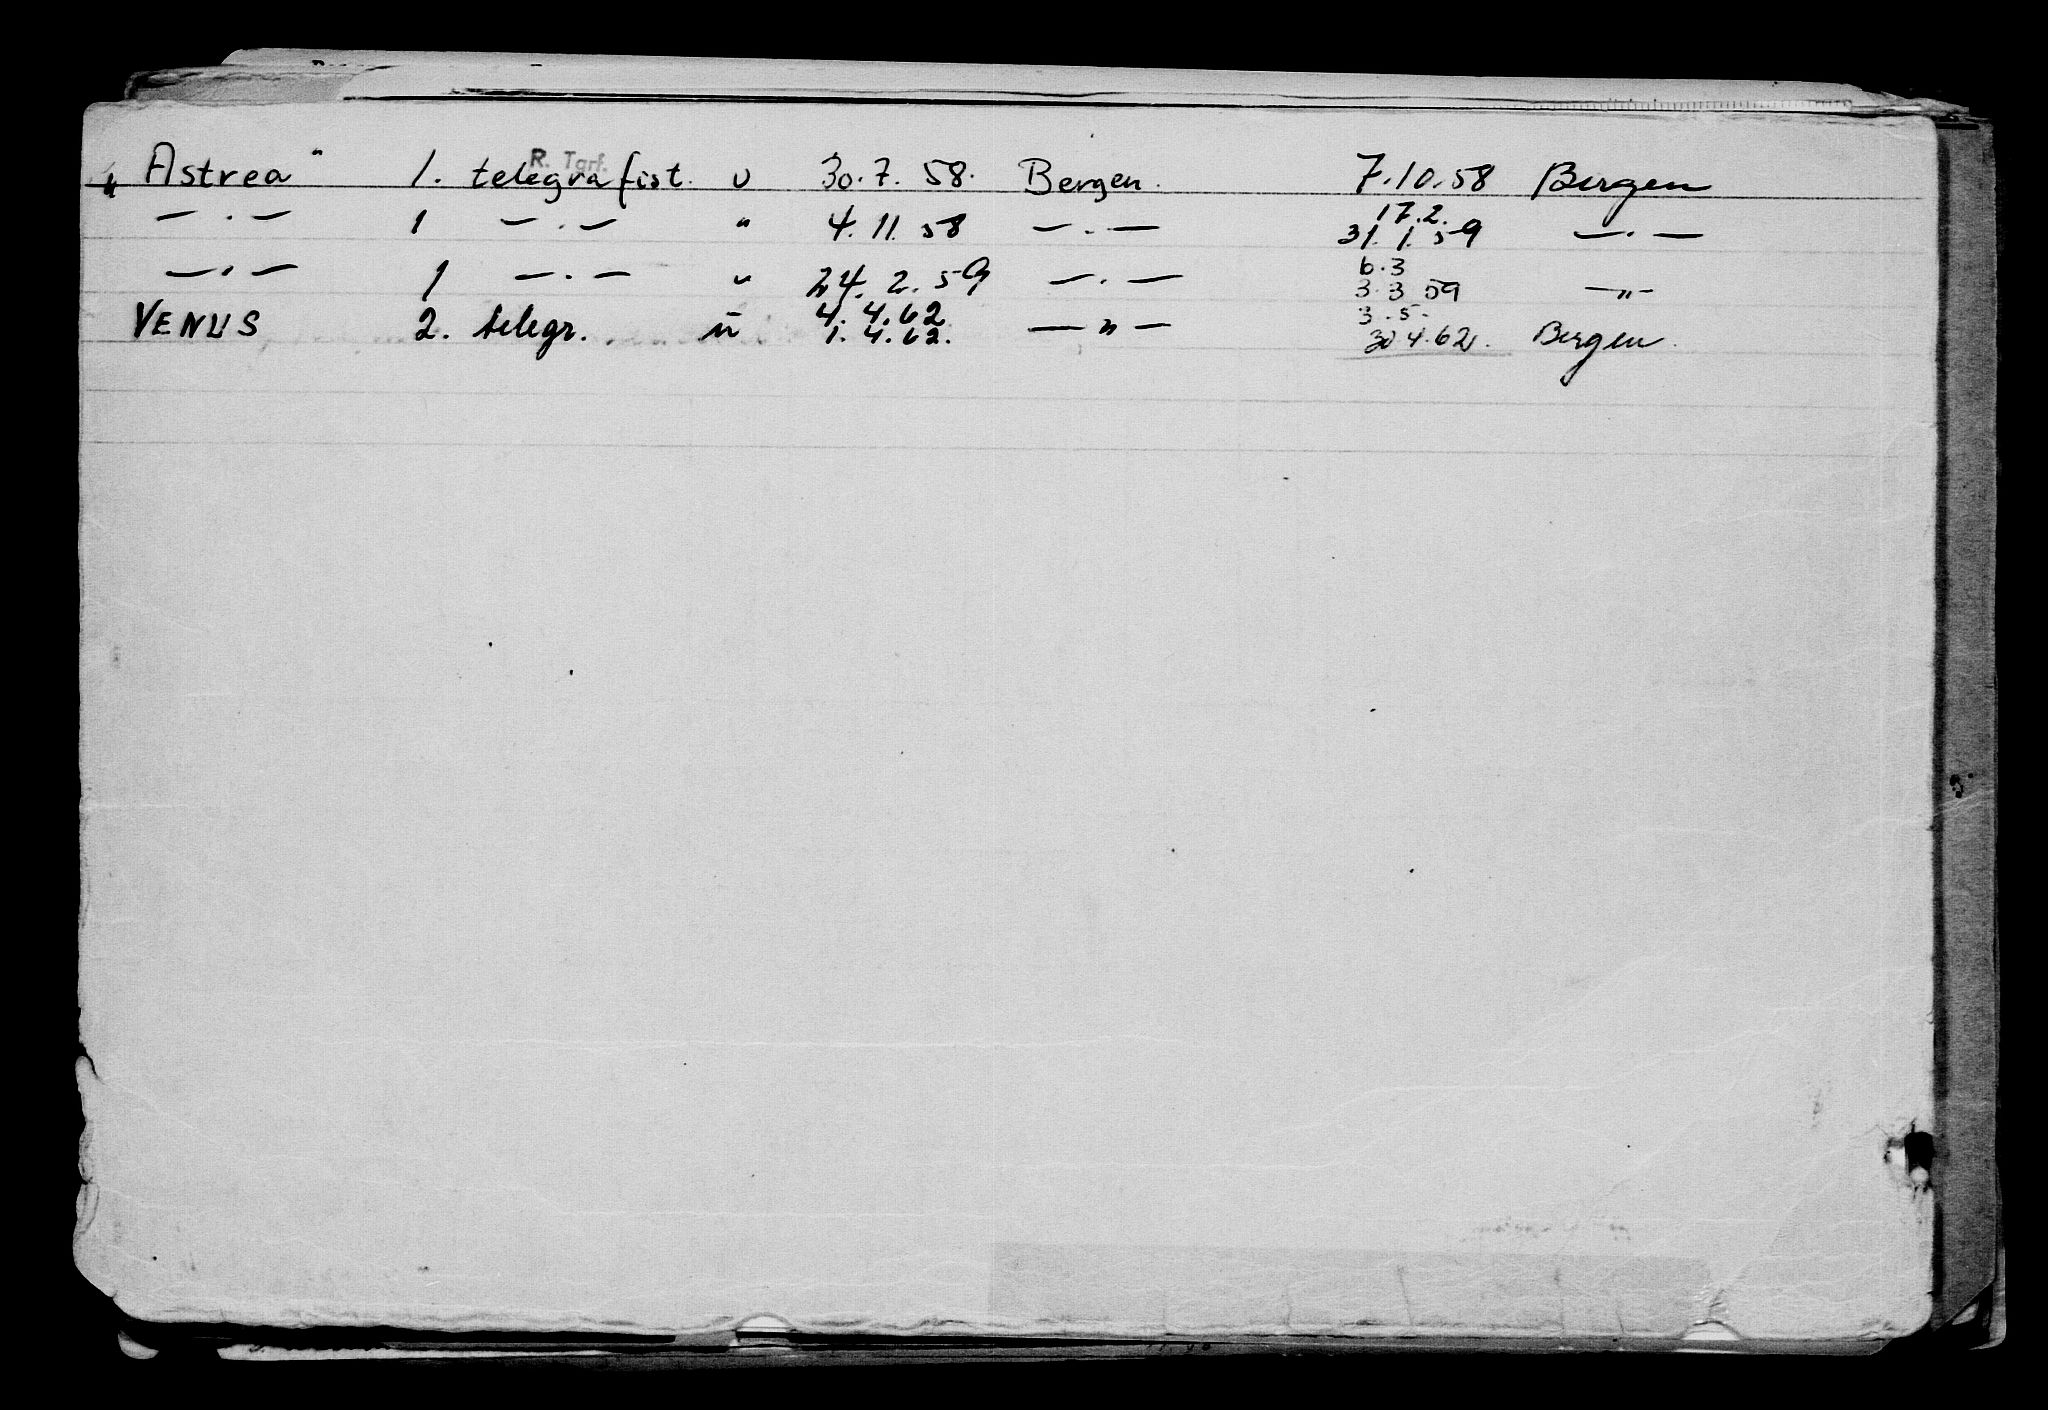 R. Tarf.
„Astrea" 1. telegrafist. u 30.7. 58. Bergen. 7.10.58 Bergen
17.2.
— . — 1 — . — " 4. 11. 58 — . — 31. 1. 59 — . —
6.3
— . — 1 — . — u 24. 2. 59 — . — 3.3 59 — „ —
4. 4. 62 3.5.
VENUS 2. telegr. u 1. 4. 62. — " — 30 4.62. Bergen.